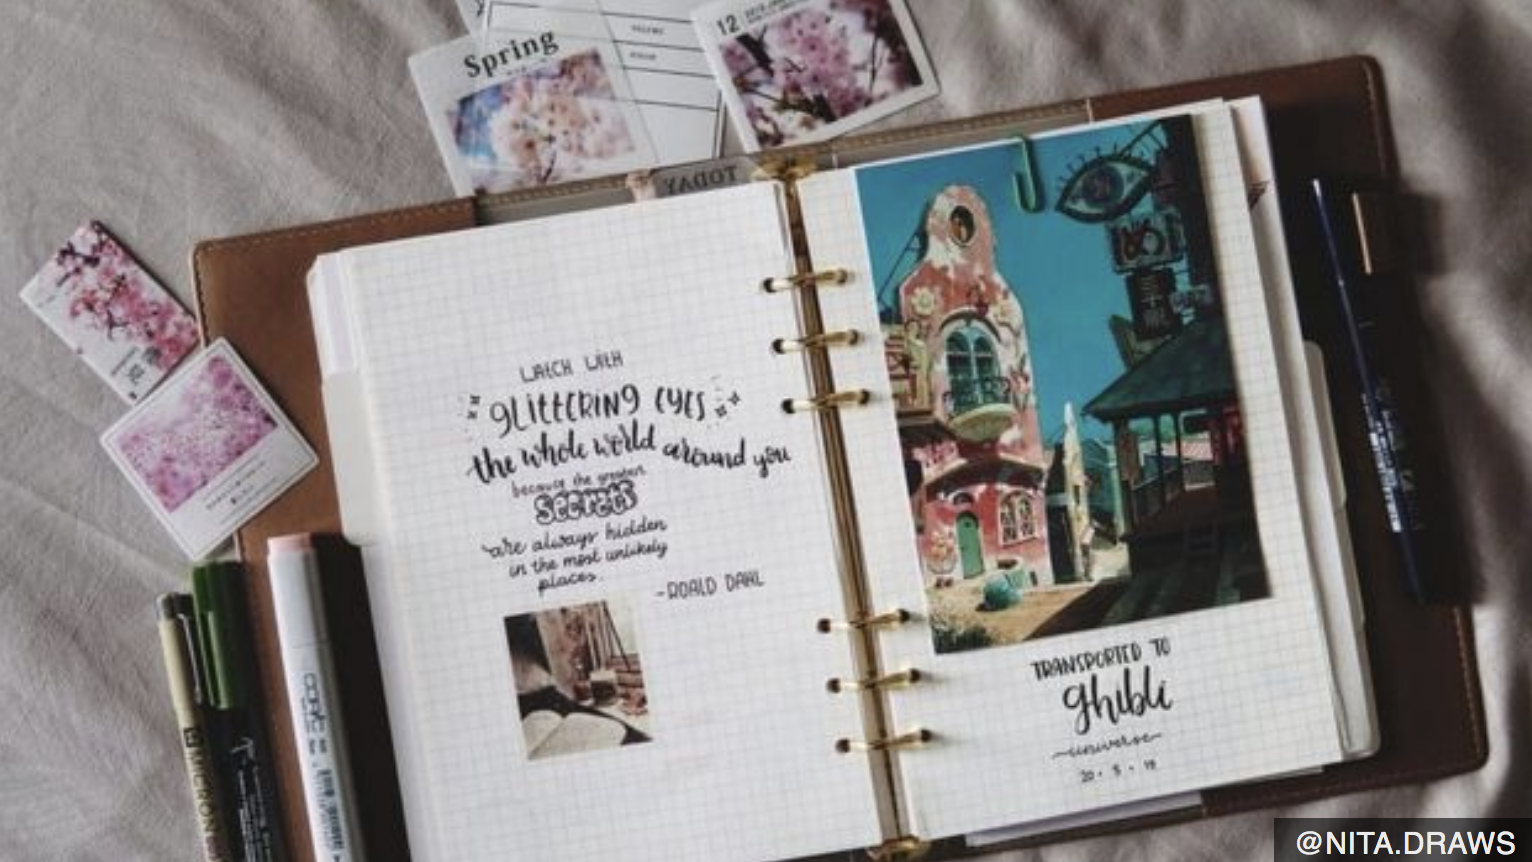 Spring
VOLUME
12
TODAY
WATCH WITH
GLITTERING EYES
the whole world around you
because the greatest
SECRETS
are always hidden
in the most unlikely
places.
-ROALD DAHL
め
TRANSPORTED TO
ghibli
universe
20 · 5 · 19
COPIC
MICRON
@NITA.DRAWS